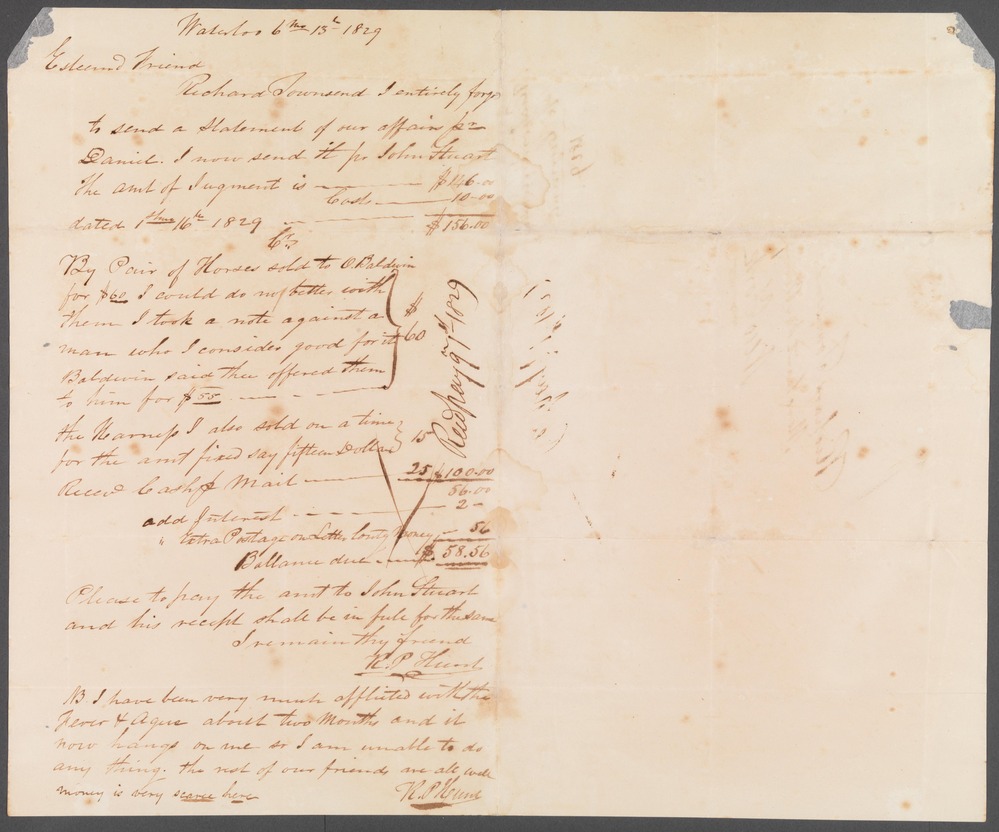 Waterloo 6th mo 13th 1829
Esteemd Friend
Richard Townsend I entirely forgo
to send a Statement of our affairs pr
Daniel. I now send it pr John Stuart
the amt of Jugment is — $146.00
Costs — 10.00
dated 1st mo 16th 1829 — $156.00
Cr
By Pair of Horses sold to O. Baldwin
for $60 I could do no better with
them I took a note against a $
man who I consider good for it 60
Baldwin said thee offered them
to him for $55
the Harness I also sold on a time
for the amt fixed say fifteen Dollars 15
Receivd Cash pr Mail — 25 $100.00
56.00
add Interest — 2 –
" Extra Postage on Letter Conty Money – 56
Ballance due — $58.56
Please to pay the amt to John Stuart
and his receipt shall be in full for the same
I remain thy friend
R. P Hunt
NB I have been very much afflicted with the
Fever & Ague about two Months and it
now hangs on me so I am unable to do
any thing. the rest of our friends are all well
money is very scarce here R. P Hunt
1829